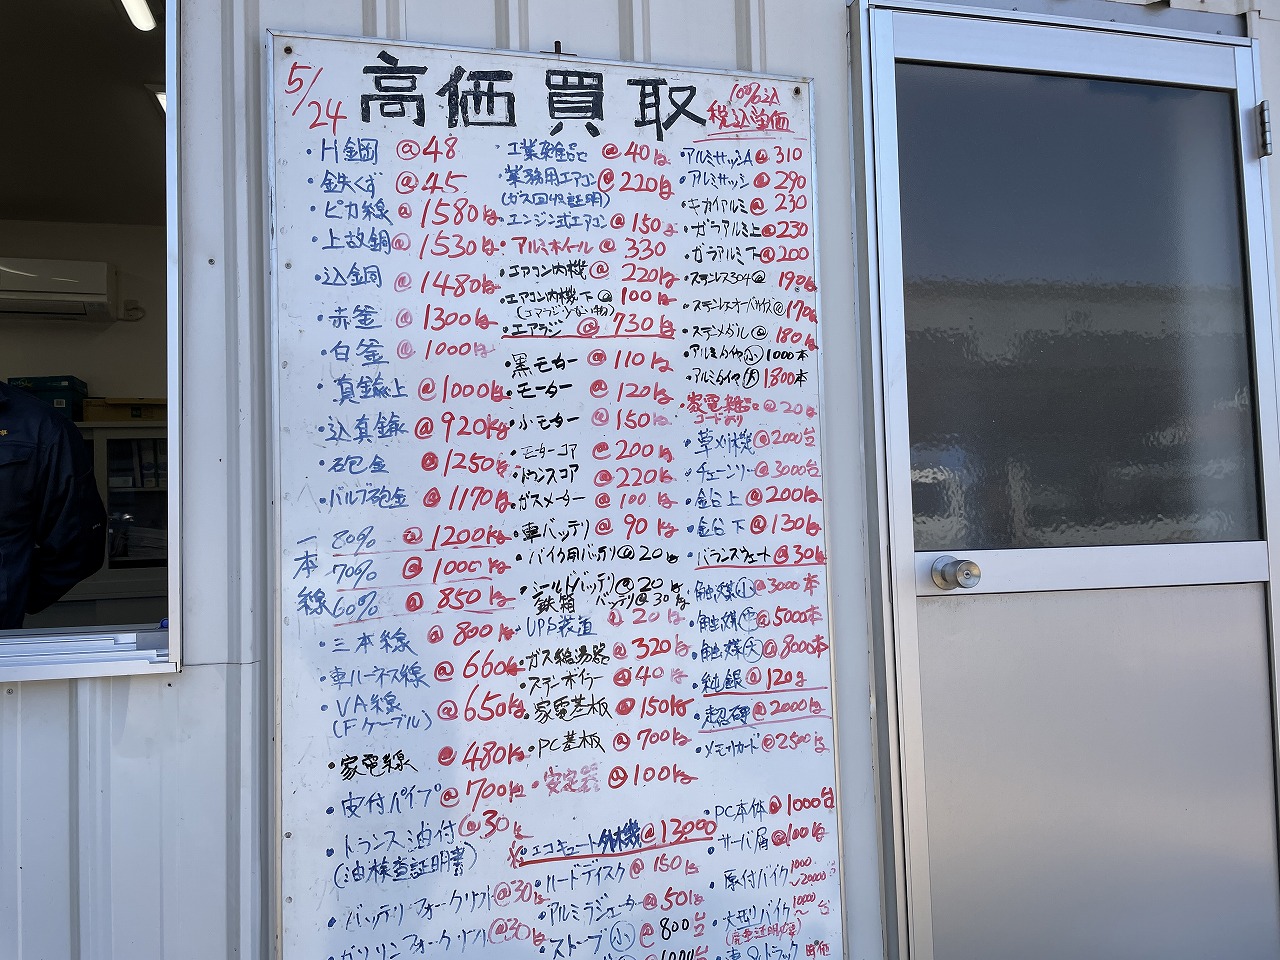 5/24
高価買取
10%込
税込単価
・H鋼 @48
・鉄くず @45
・ピカ線 @1580kg
・上故銅 @1530kg
・込銅 @1480kg
・赤釜 @1300kg
・白釜 @1000kg
・真鍮上 @1000kg
・込真鍮 @920kg
・砲金 @1250kg
・バルブ砲金 @1170kg
一本線
80% @1200kg
70% @1000kg
60% @850kg
・三本線 @800kg
・車ハーネス線 @660kg
・VA線 @650kg
(Fケーブル)
・家電線 @480kg
・皮付パイプ @700kg
・トランス油付 @30kg
(油検査証明書)
・バッテリーフォークリフト @30kg
・ガソリンフォークリフト @30kg
・工業雑品 @40kg
・業務用エアコン @220kg
(ガス回収証明)
・エンジン式エアコン @150kg
・アルミホイール @330
・エアコン内機 @220kg
・エアコン内機下 @100kg
(エアラジ少ない物)
・エアラジ @730kg
・黒モーター @110kg
・モーター @120kg
・小モーター @150kg
・モーターコア @200kg
・トランスコア @220kg
・ガスメーター @100kg
・車バッテリ @90kg
・バイク用バッテリ @20kg
・シールドバッテリ @20kg
鉄箱バッテリ @30kg
・UPS装置 @20kg
・ガス給湯器 @320kg
・ステンボイラー @40kg
・家電基板 @150kg
・PC基板 @700kg
・安定器 @100kg
※・エコキュート外機 @13000
・ハードディスク @150kg
・アルミラジエーター @50kg
・ストーブ(小) @800台
・アルミサッシA @310
・アルミサッシ @290
・キカイアルミ @230
・ガラアルミ上 @230
・ガラアルミ下 @200
・ステンレス304 @190kg
・ステンレスオーバサイズ @170kg
・ステンメダル @180kg
・アルミタイヤ(小) 1000本
・アルミタイヤ(大) 1800本
・家電雑品 @20kg
コードあり
・草刈機 @2000台
・チェーンソー @3000台
・金台上 @200kg
・金台下 @130kg
・バランスウェート @30kg
・触媒(小) @3000本
・触媒(中) @5000本
・触媒(大) @8000本
・純銀 @120g
・超硬 @2000kg
・メモリカード @2500kg
・PC本体 @1000台
・サーバ屑 @100kg
・原付バイク 1000〜20000台
・大型バイク 10000〜台
(廃車証明必要)